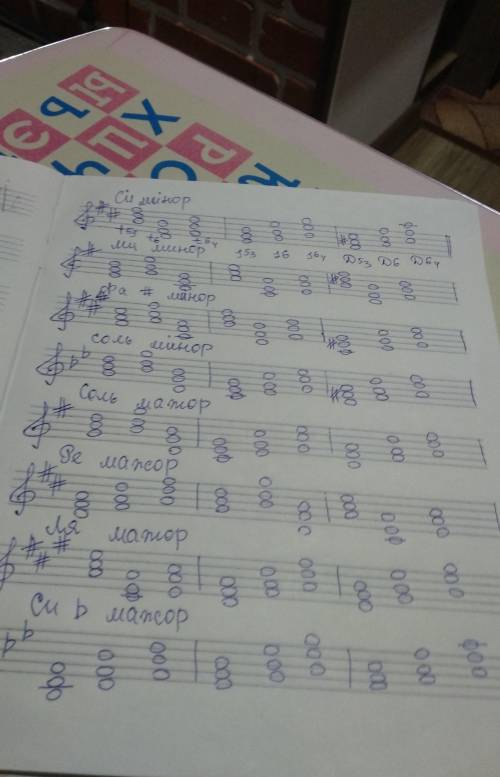 Си мінор
t53 t6 t64 s53 s6 s64 D53 D6 D64
ми минор
фа # минор
соль мінор
Соль мажор
Ре мажор
Ля мажор
Си b мажор